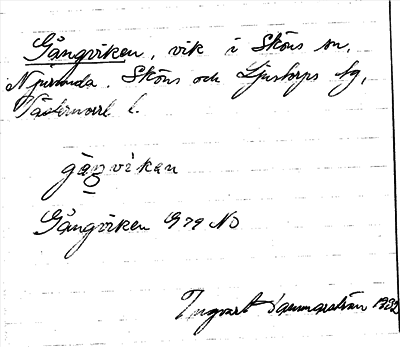 Gångviken, vik i Sköns sn,
Njurunda, Sköns och Ljustorps tg,
Västernorrl l.
gåŋvikən
Gångviken G 79 NO
Ingvart Hammarström 1932